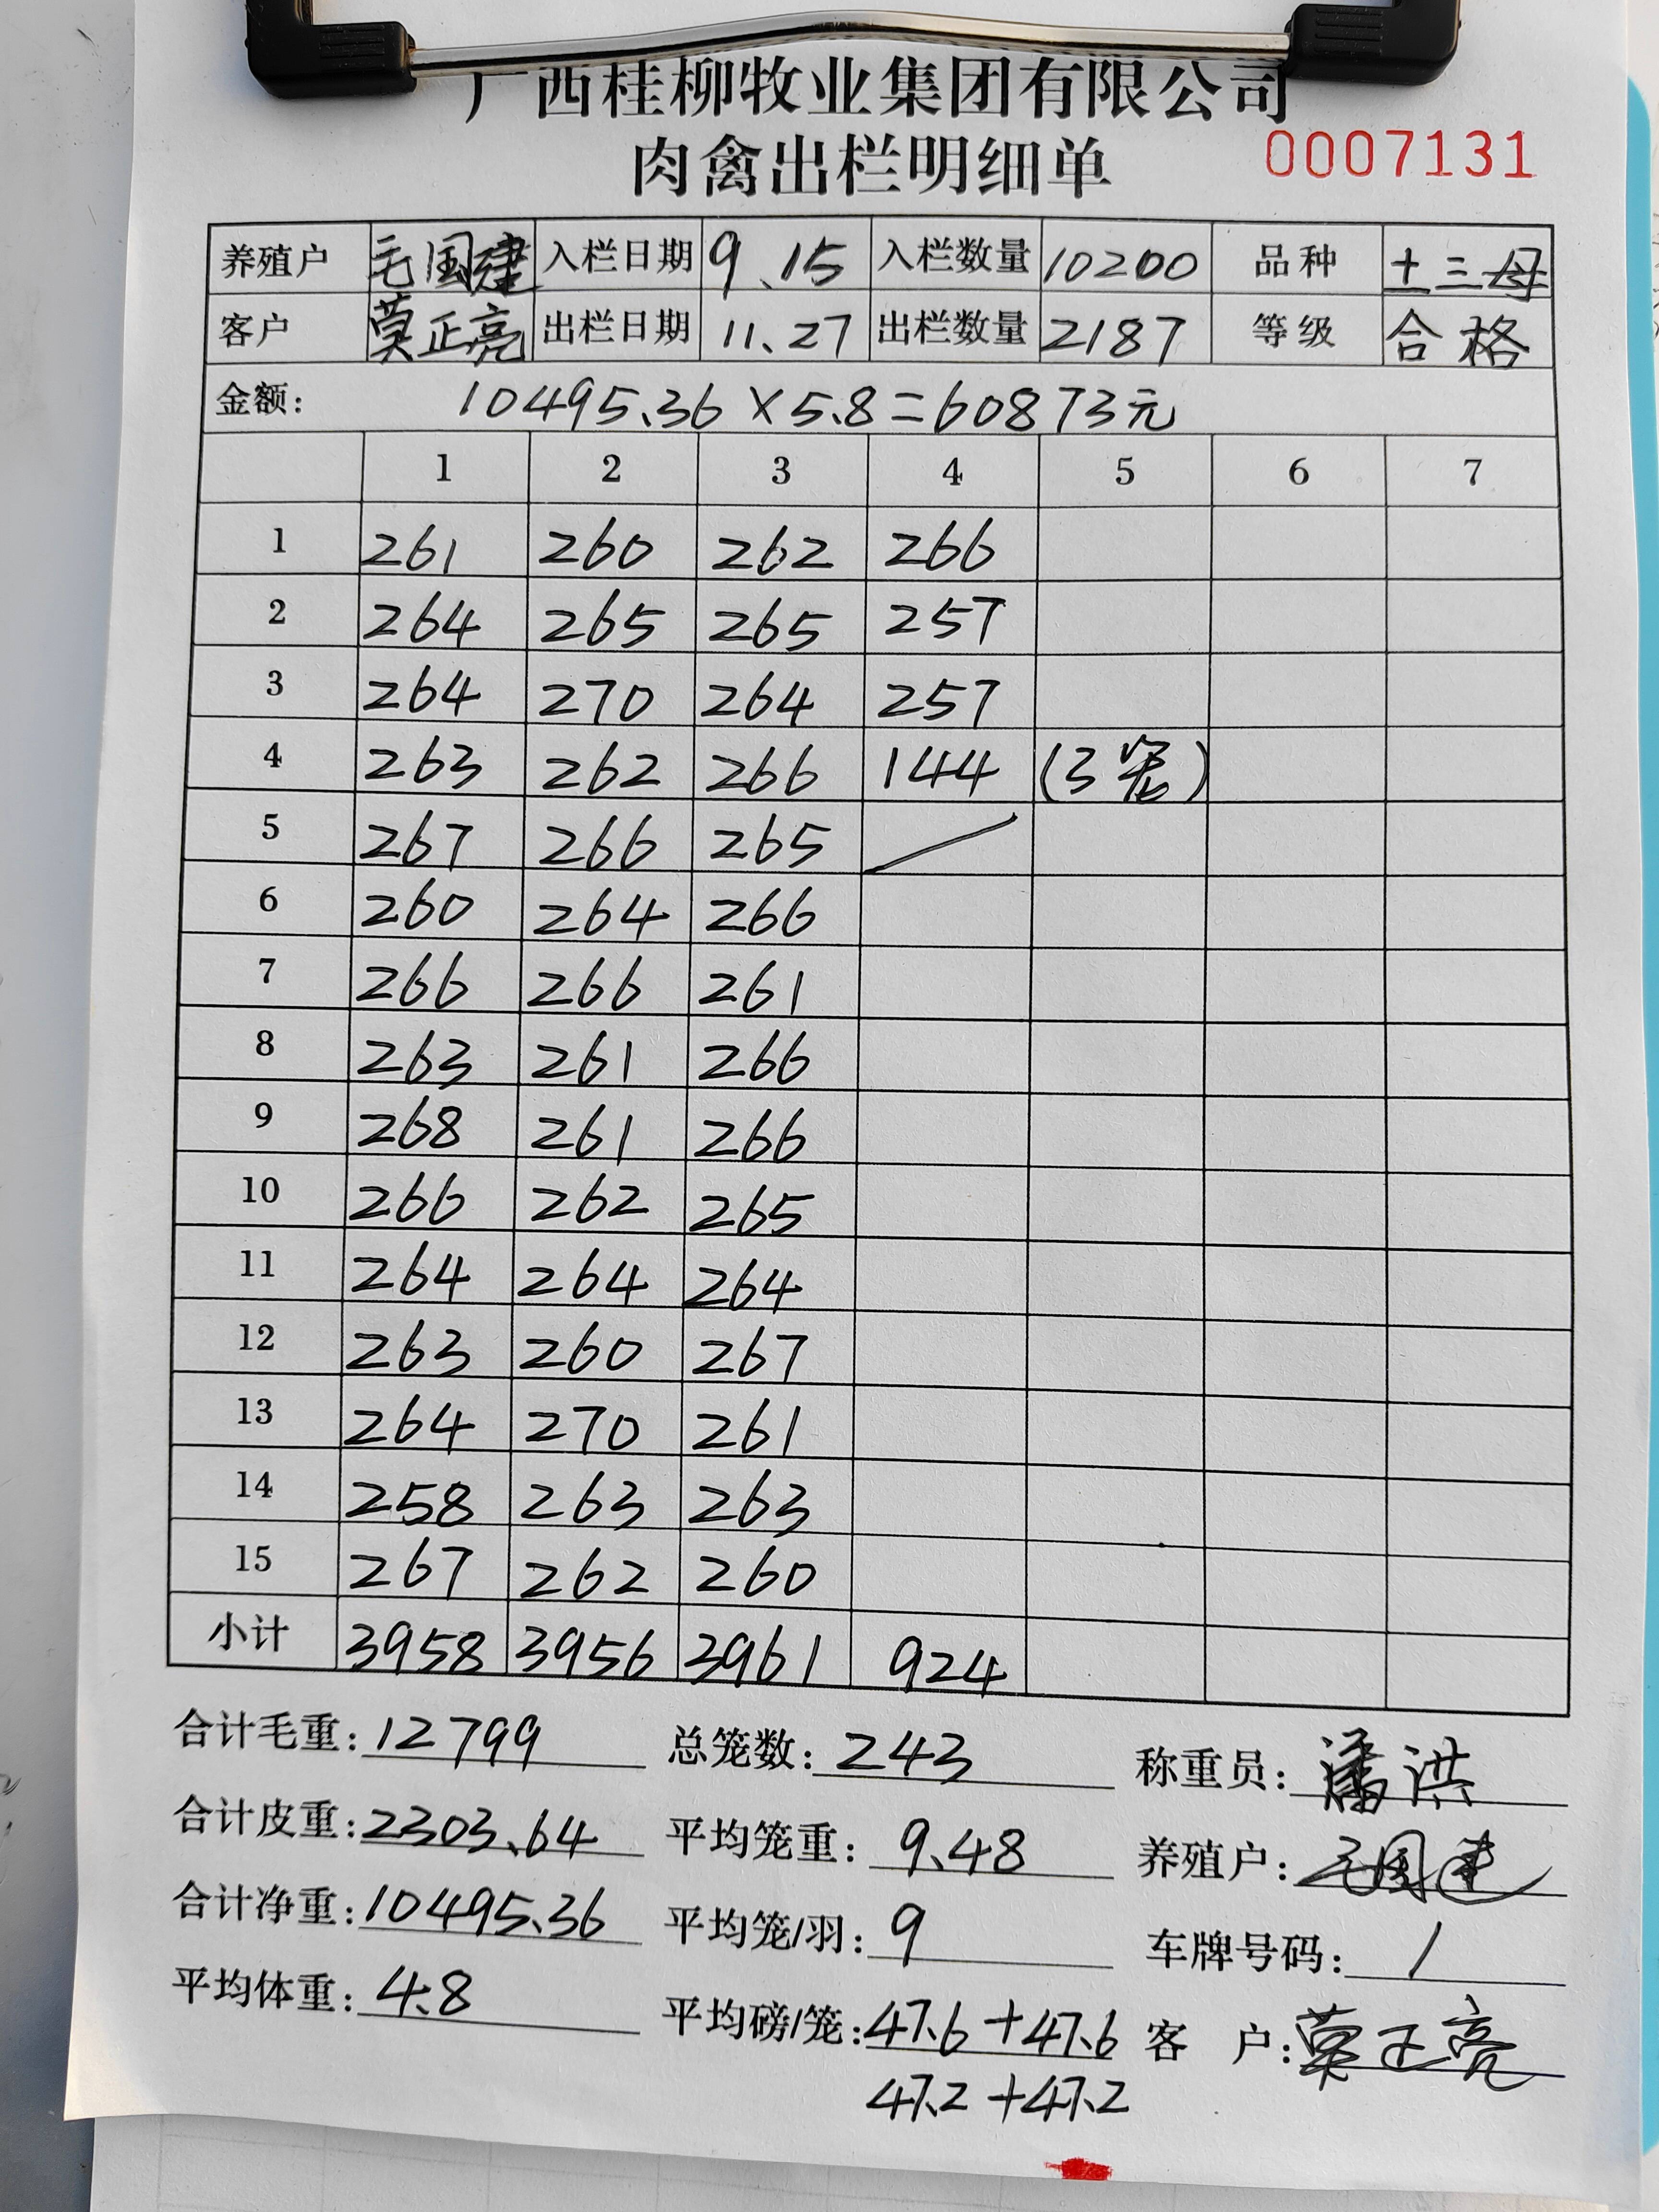 广西桂柳牧业集团有限公司
肉禽出栏明细单 0007131
养殖户 毛国建 入栏日期 9.15 入栏数量 10200 品种 土三母
客户 莫正亮 出栏日期 11.27 出栏数量 2187 等级 合格
金额: 10495.36×5.8=60873元
1 2 3 4 5 6 7
1 261 260 262 266
2 264 265 265 257
3 264 270 264 257
4 263 262 266 144 (3笼)
5 267 266 265
6 260 264 266
7 266 266 261
8 263 261 266
9 268 261 266
10 266 262 265
11 264 264 264
12 263 260 267
13 264 270 261
14 258 263 263
15 267 262 260
小计 3958 3956 3961 924
合计毛重: 12799 总笼数: 243 称重员: 潘洪
合计皮重: 2303.64 平均笼重: 9.48 养殖户: 毛国建
合计净重: 10495.36 平均笼/羽: 9 车牌号码: /
平均体重: 4.8 平均磅/笼: 47.6+47.6 客 户: 莫正亮
47.2+47.2